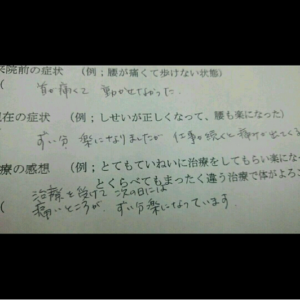 来院前の症状 (例;腰が痛くて歩けない状態)
( 首が痛くて 動かせなかった.
現在の症状 (例;しせいが正しくなって、腰も楽になった)
ずい分 楽になりましたが 仕事が続くと痛みが出てくる
療の感想 (例;とてもていねいに治療をしてもらい楽にな
とくらべてもまったく違う治療で体がよろこ
治療を受けて 次の日には
( 痛いところが ずい分楽になっています